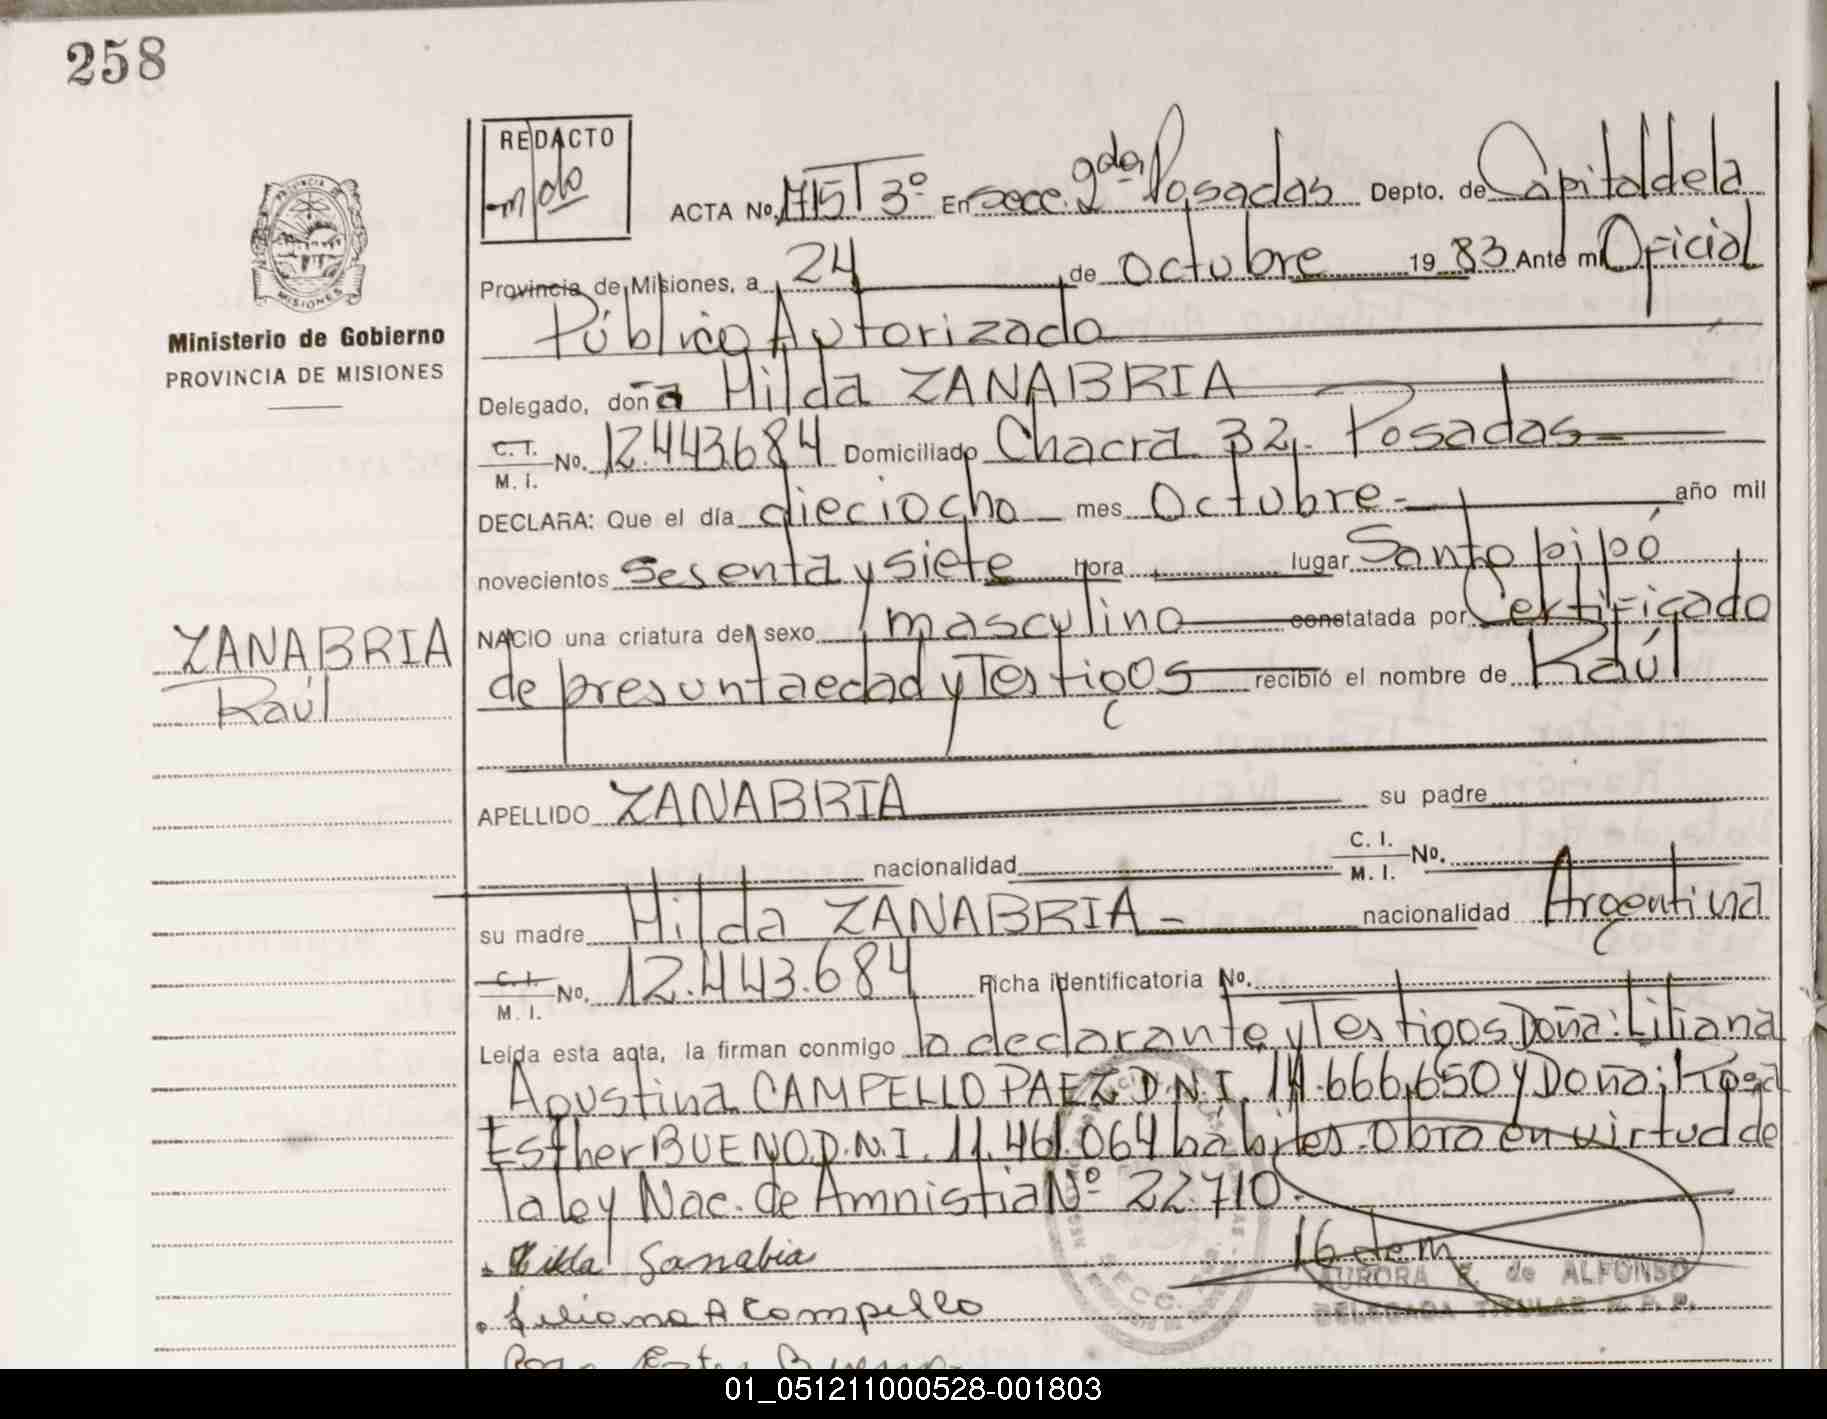 258
REDACTO
ACTA No. 1715 T 3º En secc. 2da Posadas Depto. de Capital de la
Provincia de Misiones, a 24 de Octubre 1983 Ante mi Oficial
Público Autorizado
Ministerio de Gobierno
PROVINCIA DE MISIONES
Delegado, doña Hilda ZANABRIA
C. I. M. I. No. 12.443.684 Domiciliado Chacra 32. Posadas
DECLARA: Que el día dieciocho mes Octubre año mil
novecientos sesenta y siete hora lugar Santo pipó
NACIO una criatura del sexo masculino constatada por Certificado
de presunta edad y Testigos recibió el nombre de Raúl
ZANABRIA
Raúl
APELLIDO ZANABRIA su padre
nacionalidad C. I. M. I. No.
su madre Hilda ZANABRIA nacionalidad Argentina
C. I. M. I. No. 12.443.684 Ficha identificatoria No.
Leída esta acta, la firman conmigo la declarante y Testigos Doña: Liliana
Agustina CAMPELLO PAEZ D.N.I. 14.666.650 y Doña: Rosa
Esther BUENO D.N.I. 11.461.064 hábiles. Obra en virtud de
la ley Nac. de Amnistia Nº 22.710.
16 dem
Hilda Sanabia
AURORA de ALFONSO
DELEGADA TITULAR
Liliana A Campello
01_051211000528-001803